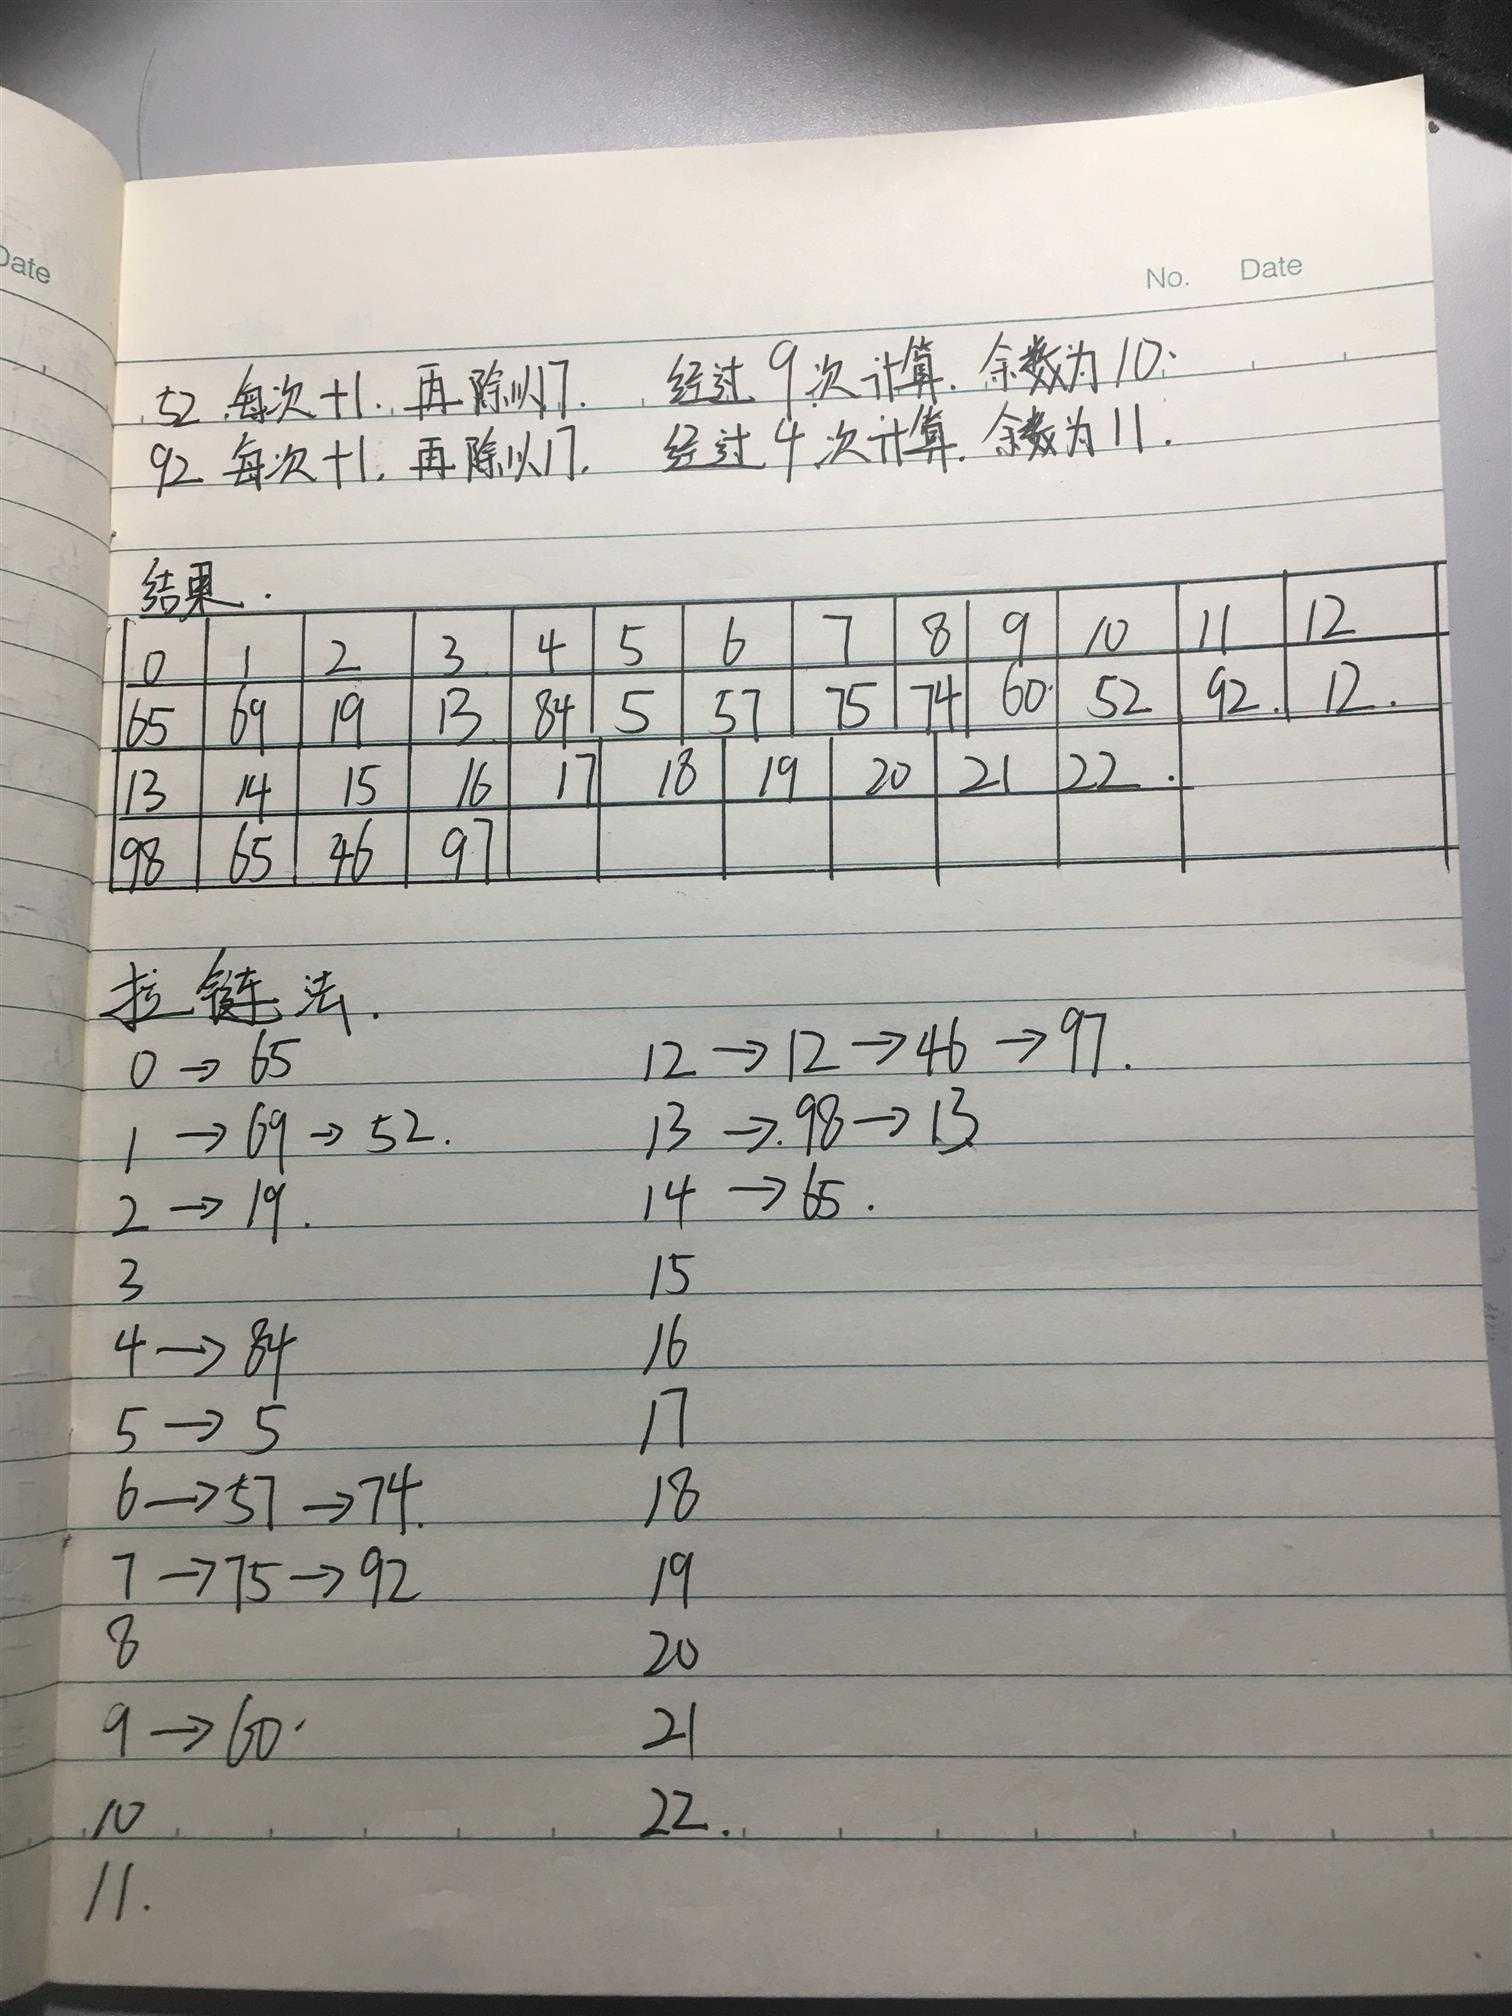 Date
No. Date
52 每次+1. 再除以17. 经过9次计算. 余数为10.
92 每次+1. 再除以17. 经过4次计算. 余数为11.
结果.
0 1 2 3 4 5 6 7 8 9 10 11 12
65 69 19 13 84 5 57 75 74 60 52 92. 12.
13 14 15 16 17 18 19 20 21 22.
98 65 46 97
拉链法.
0→65
1→69→52.
2→19.
3
4→84
5→5
6→57→74.
7→75→92
8
9→60.
10
11.
12→12→46→97.
13→98→13
14→65.
15
16
17
18
19
20
21
22.